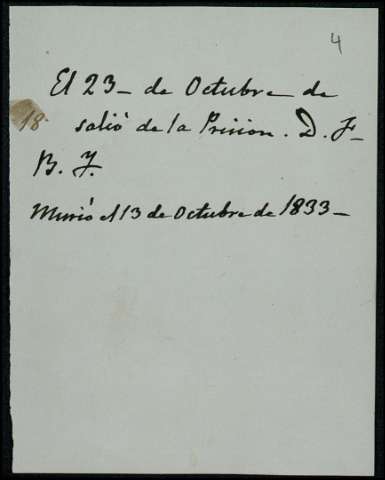 4
El 23 - de Octubre de
18 salió de la Prision. D. F-
B. J.
Murió el 13 de Octubre de 1833 -